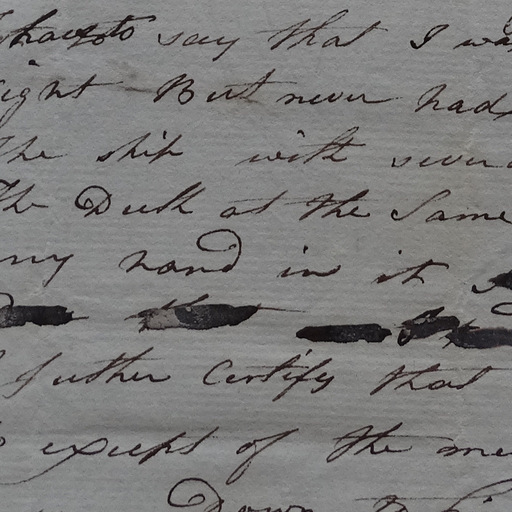 have to say that I was
But never had
The ship with
The Deck at the Same
my hand in it I
I futher Certify that
except of the me
Down to